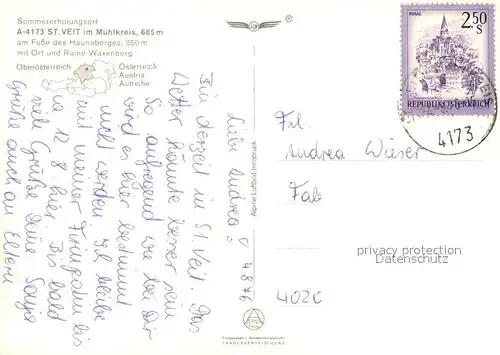 Sommererholungsort
A-4173 ST. VEIT im Mühlkreis, 685 m
am Fuße des Hansberges, 850 m
mit Ort und Ruine Waxenberg
Oberösterreich
Österreich
Austria
Autriche
Liebe Andrea!
4 8 76
Bin derzeit in St. Veit. Das
Wetter könnte besser sein
So aufregend wie bei Dir
wird es hier bestimmt
nicht werden. Ich bleibe
mit meiner
ca 12 8 hier. Bis bald
viele Grüße Deine Sonja
Grüße auch an Eltern
Alpine Luftbild Innsbruck
LANDESVERTEIDIGUNG
2.50
S
REPUBLIK ÖSTERREICH
4173
Frl.
Andrea Wieser
privacy protection
Datenschutz
4020